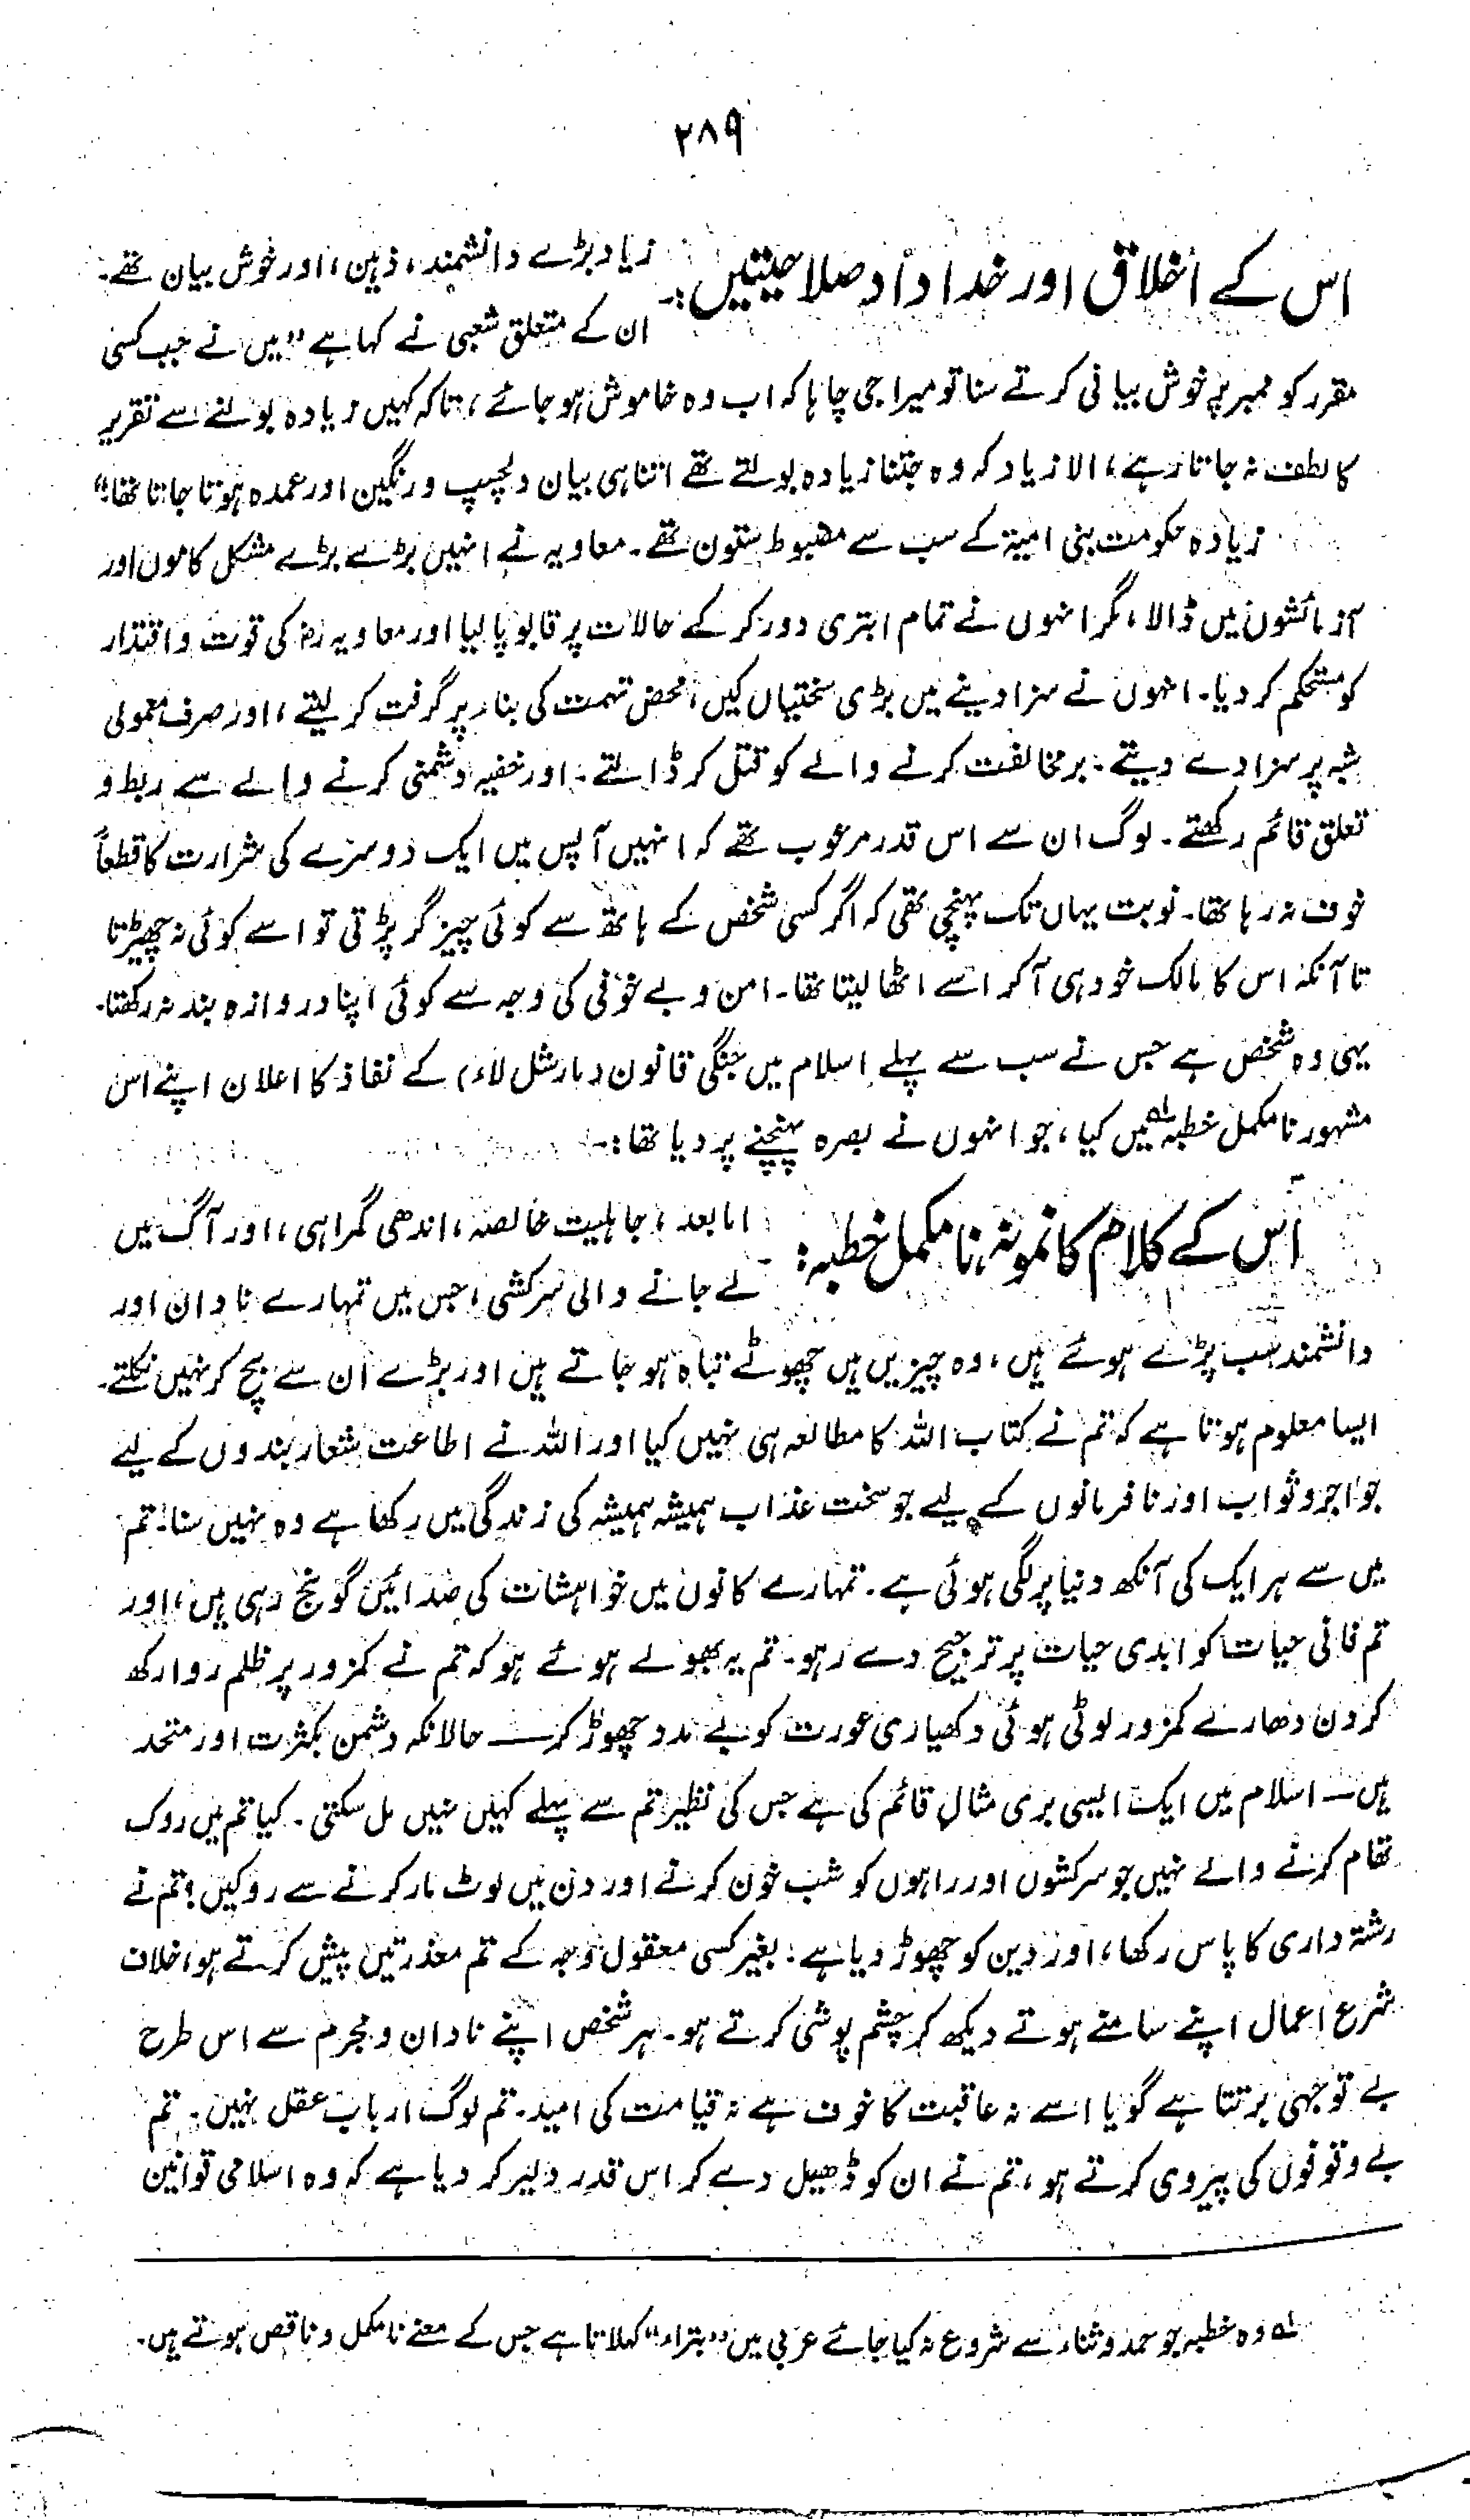 ۲۸۹
اس کے اخلاق اور خداداد صلاحیتیں:۔ زیاد بڑے دانشمند، ذہین، اور خوش بیان تھے۔
ان کے متعلق شعبی نے کہا ہے "میں نے جب کسی
مقرر کو ممبر پر خوش بیانی کرتے سنا تو میرا جی چاہا کہ اب وہ خاموش ہو جائے، تاکہ کہیں زیادہ بولنے سے تقریر
کا لطف نہ جاتا رہے، الا زیاد کہ وہ جتنا زیادہ بولتے تھے اتنا ہی بیان دلچسپ و رنگین اور عمدہ ہوتا جاتا تھا"
زیادہ حکومت بنی امیۃ کے سب سے مضبوط ستون تھے۔ معاویہ نے انہیں بڑے بڑے مشکل کاموں اور
آزمائشوں میں ڈالا، مگر انہوں نے تمام ابتری دور کر کے حالات پر قابو پا لیا اور معاویہ رض کی قوت و اقتدار
کو مستحکم کر دیا۔ انہوں نے سزا دینے میں بڑی سختیاں کیں، محض تہمت کی بناء پر گرفت کر لیتے، اور صرف معمولی
شبہ پر سزا دے دیتے۔ برمخالفت کرنے والے کو قتل کر ڈالتے۔ اور خفیہ دشمنی کرنے والے سے ربط و
تعلق قائم رکھتے۔ لوگ ان سے اس قدر مرعوب تھے کہ انہیں آپس میں ایک دوسرے کی شرارت کا قطعاً
خوف نہ رہا تھا۔ نوبت یہاں تک پہنچی تھی کہ اگر کسی شخص کے ہاتھ سے کوئی چیز گر پڑتی تو اسے کوئی نہ چھیڑتا
تا آنکہ اس کا مالک خود ہی آ کر اسے اٹھا لیتا تھا۔ امن و بے خوفی کی وجہ سے کوئی اپنا دروازہ بند نہ رکھتا۔
یہی وہ شخص ہے جس نے سب سے پہلے اسلام میں جنگی قانون (مارشل لاء) کے نفاذ کا اعلان اپنے اس
مشہور نامکمل خطبہ لہ میں کیا، جو انہوں نے بصرہ پہنچنے پر دیا تھا:۔
اس کے کلام کا نمونہ نامکمل خطبہ:۔ اما بعد، جاہلیت خالصہ، اندھی گمراہی، اور آگ میں
لے جانے والی سرکشی، جس میں تمہارے نادان اور
دانشمند سب پڑے ہوئے ہیں، وہ چیزیں ہیں چھوٹے تباہ ہو جاتے ہیں اور بڑے ان سے بچ کر نہیں نکلتے۔
ایسا معلوم ہوتا ہے کہ تم نے کتاب اللہ کا مطالعہ ہی نہیں کیا اور اللہ نے اطاعت شعار بندوں کے لیے
جو اجر و ثواب اور نافرمانوں کے لیے جو سخت عذاب ہمیشہ ہمیشہ کی زندگی میں رکھا ہے وہ نہیں سنا! تم
میں سے ہر ایک کی آنکھ دنیا پر لگی ہوئی ہے۔ تمہارے کانوں میں خواہشات کی صدائیں گونج رہی ہیں، اور
تم فانی حیات کو ابدی حیات پر ترجیح دے رہو۔ تم یہ بھولے ہوئے ہو کہ تم نے کمزور پر ظلم روا رکھ
کر دن دھارے کمزور لوٹی ہوئی دکھیاری عورت کو بے مدد چھوڑ کر — حالانکہ دشمن بکثرت اور متحد
ہیں — اسلام میں ایک ایسی بری مثال قائم کی ہے جس کی نظیر تم سے پہلے کہیں نہیں مل سکتی۔ کیا تم میں روک
تھام کرنے والے نہیں جو سرکشوں اور راہوں کو شب خون کرنے اور دن میں لوٹ مار کرنے سے روکیں؟ تم نے
رشتہ داری کا پاس رکھا، اور دین کو چھوڑ دیا ہے؛ بغیر کسی معقول وجہ کے تم معذرتیں پیش کرتے ہو، خلاف
شرع اعمال اپنے سامنے ہوتے دیکھ کر چشم پوشی کرتے ہو۔ ہر شخص اپنے نادان و مجرم سے اس طرح
بے توجہی برتتا ہے گویا اسے نہ عاقبت کا خوف ہے نہ قیامت کی امید۔ تم لوگ ارباب عقل نہیں۔ تم
بے وقوفوں کی پیروی کرتے ہو، تم نے ان کو ڈھیل دے کر اس قدر دلیر کر دیا ہے کہ وہ اسلامی قوانین
لہ وہ خطبہ جو حمد و ثناء سے شروع نہ کیا جائے عربی میں "بتراء" کہلاتا ہے جس کے معنے نامکمل و ناقص ہوتے ہیں۔